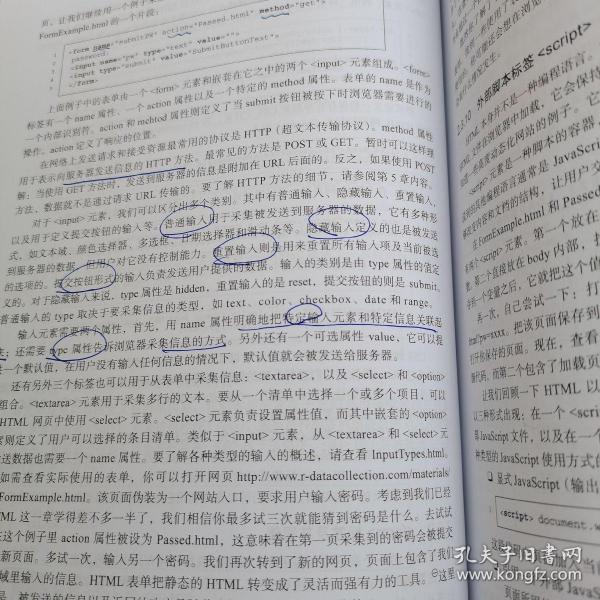 页，让我们继续用一个例子来
FormExample.html 的一个片段：
1 <form name="submitPW" action="Passed.html" method="get">
2 password:
3 <input name="pw" type="text" value="">
4 <input type="submit" value="SubmitButtonText">
5 </form>
上面例子中的表单由一个 <form> 元素和嵌套在它之中的两个 <input> 元素组成。<form>
标签有一个 name 属性、一个 action 属性以及一个特定的 method 属性。表单的 name 是作为
一个内部识别符。action 和 mechtod 属性则定义了当 submit 按钮被按下时浏览器需要进行的
操作。action 定义了响应的位置。
在网络上发送请求和接受资源最常用的协议是 HTTP（超文本传输协议）。method 属性
用于表示向服务器发送信息的 HTTP 方法。最常见的方法是 POST 或 GET。暂时可以这样理
解：当使用 GET 方法时，发送到服务器的信息是附加在 URL 后面的。反之，如果使用 POST
方法，数据就不是通过请求 URL 传输的。要了解 HTTP 方法的细节，请参阅第 5 章内容。
对于 <input> 元素，我们可以区分出多个类别。其中有普通输入、隐藏输入、重置输入，
以及用于定义提交按钮的输入等。普通输入用于采集被发送到服务器的数据，它有多种形
式，如文本域、颜色选择器、多选框、日期选择器和滑动条等。隐藏输入定义的也是被发送
到服务器的数据，但用户对它没有控制能力。重置输入则是用来重置所有输入项及当前被选
的选项的。提交按钮形式的输入负责发送用户提供的数据。输入的类别是由 type 属性的值定
义的。对于隐藏输入来说，type 属性是 hidden，重置输入的是 reset，提交按钮的则是 submit。
普通输入的 type 取决于要采集信息的类型，如 text、color、checkbox、date 和 range。
输入元素需要两个属性，首先，用 name 属性明确地把特定输入元素和特定信息关联起
来；还需要 type 属性告诉浏览器采集信息的方式。另外还有一个可选属性 value，它可以提
一个默认值，在用户没有输入任何信息的情况下，默认值就会被发送给服务器。
还有另外三个标签也可以用于从表单中采集信息：<textarea>，以及 <select> 和 <option>
组合。<textarea> 元素用于采集多行的文本。要从一个清单中选择一个或多个项目，可以
HTML 网页中使用 <select> 元素。<select> 元素负责设置属性值，而其中嵌套的 <option>
则定义了用户可以选择的条目清单。类似于 <input> 元素，从 <textarea> 和 <select> 元
送数据也需要一个 name 属性。要了解各种类型的输入的概述，请查看 InputTypes.html。
如需查看实际使用的表单，你可以打开网页 http://www.r-datacollection.com/materials/
FormExample.html。该页面伪装为一个网站入口，要求用户输入密码。考虑到我们已经
ML 这一章学得差不多一半了，我们相信你最多试三次就能猜到密码是什么。去试试
在这个例子里 action 属性被设为 Passed.html，这意味着在第一页采集到的密码会被提交
新页面。多试一次，输入另一个密码。我们再次转到了新的网页，页面上包含了我们
域里输入的信息。HTML 表单把静态的 HTML 转变成了灵活而强有力的工具。
2.3.10 外部脚本标签 <script>
HTML 本身并不是一种编程语言。
<script> 元素是一种脚本的容器，
在 FormExample.html 和 Passed
再一次，自己尝试一下：打
让我们回顾一下 HTML 以
以三种形式出现：在一个 <scri
部 JavaScript 文件，以及在一个
种类型的 JavaScript 使用方式的
显式 JavaScript（输出
<script> document.w
孔夫子旧书网
www.kongfz.com